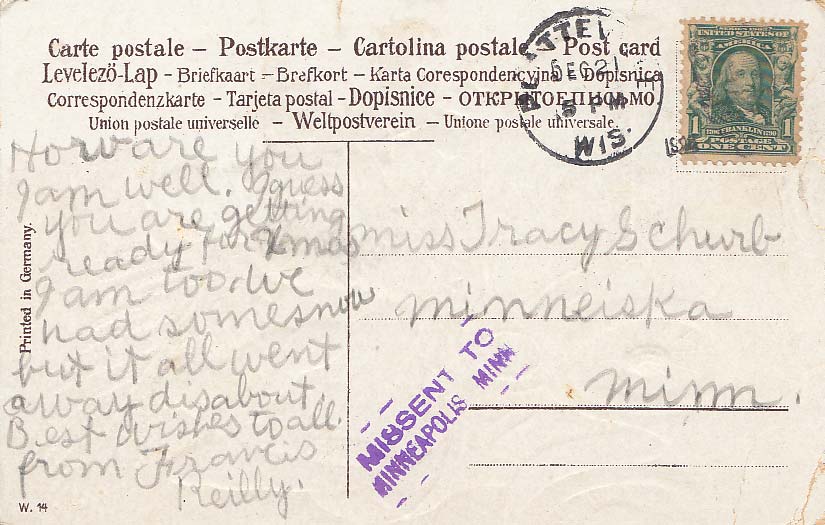 Carte postale – Postkarte – Cartolina postale – Post card
Levelezö-Lap – Briefkaart – Brefkort – Karta Corespondencyjna – Dopisnica
Correspondenzkarte – Tarjeta postal – Dopisnice – ОТКРЫТОЕ ПИСЬМО.
Union postale universelle – Weltpostverein – Unione postale universale.
DEC 21
5 PM
WIS.
UNITED STATES
OF AMERICA
1706 FRANKLIN 1790
POSTAGE
1 ONE CENT 1
How are you
I am well. I guess
you are getting
ready for Xmas
I am too. We
had some snow
but it all went
away disabout
Best wishes to all.
from Francis
Reilly.
Miss Tracy Schurb
Minneiska
Minn.
MISSENT TO
MINNEAPOLIS MINN
Printed in Germany.
W. 14